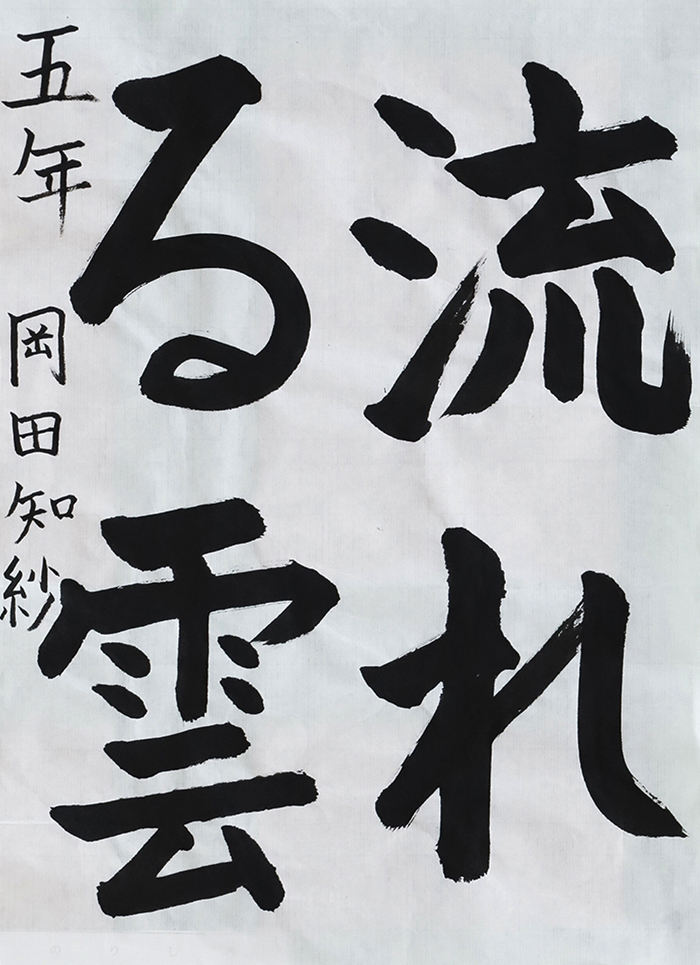 流れ
る雲
五年 岡田知紗